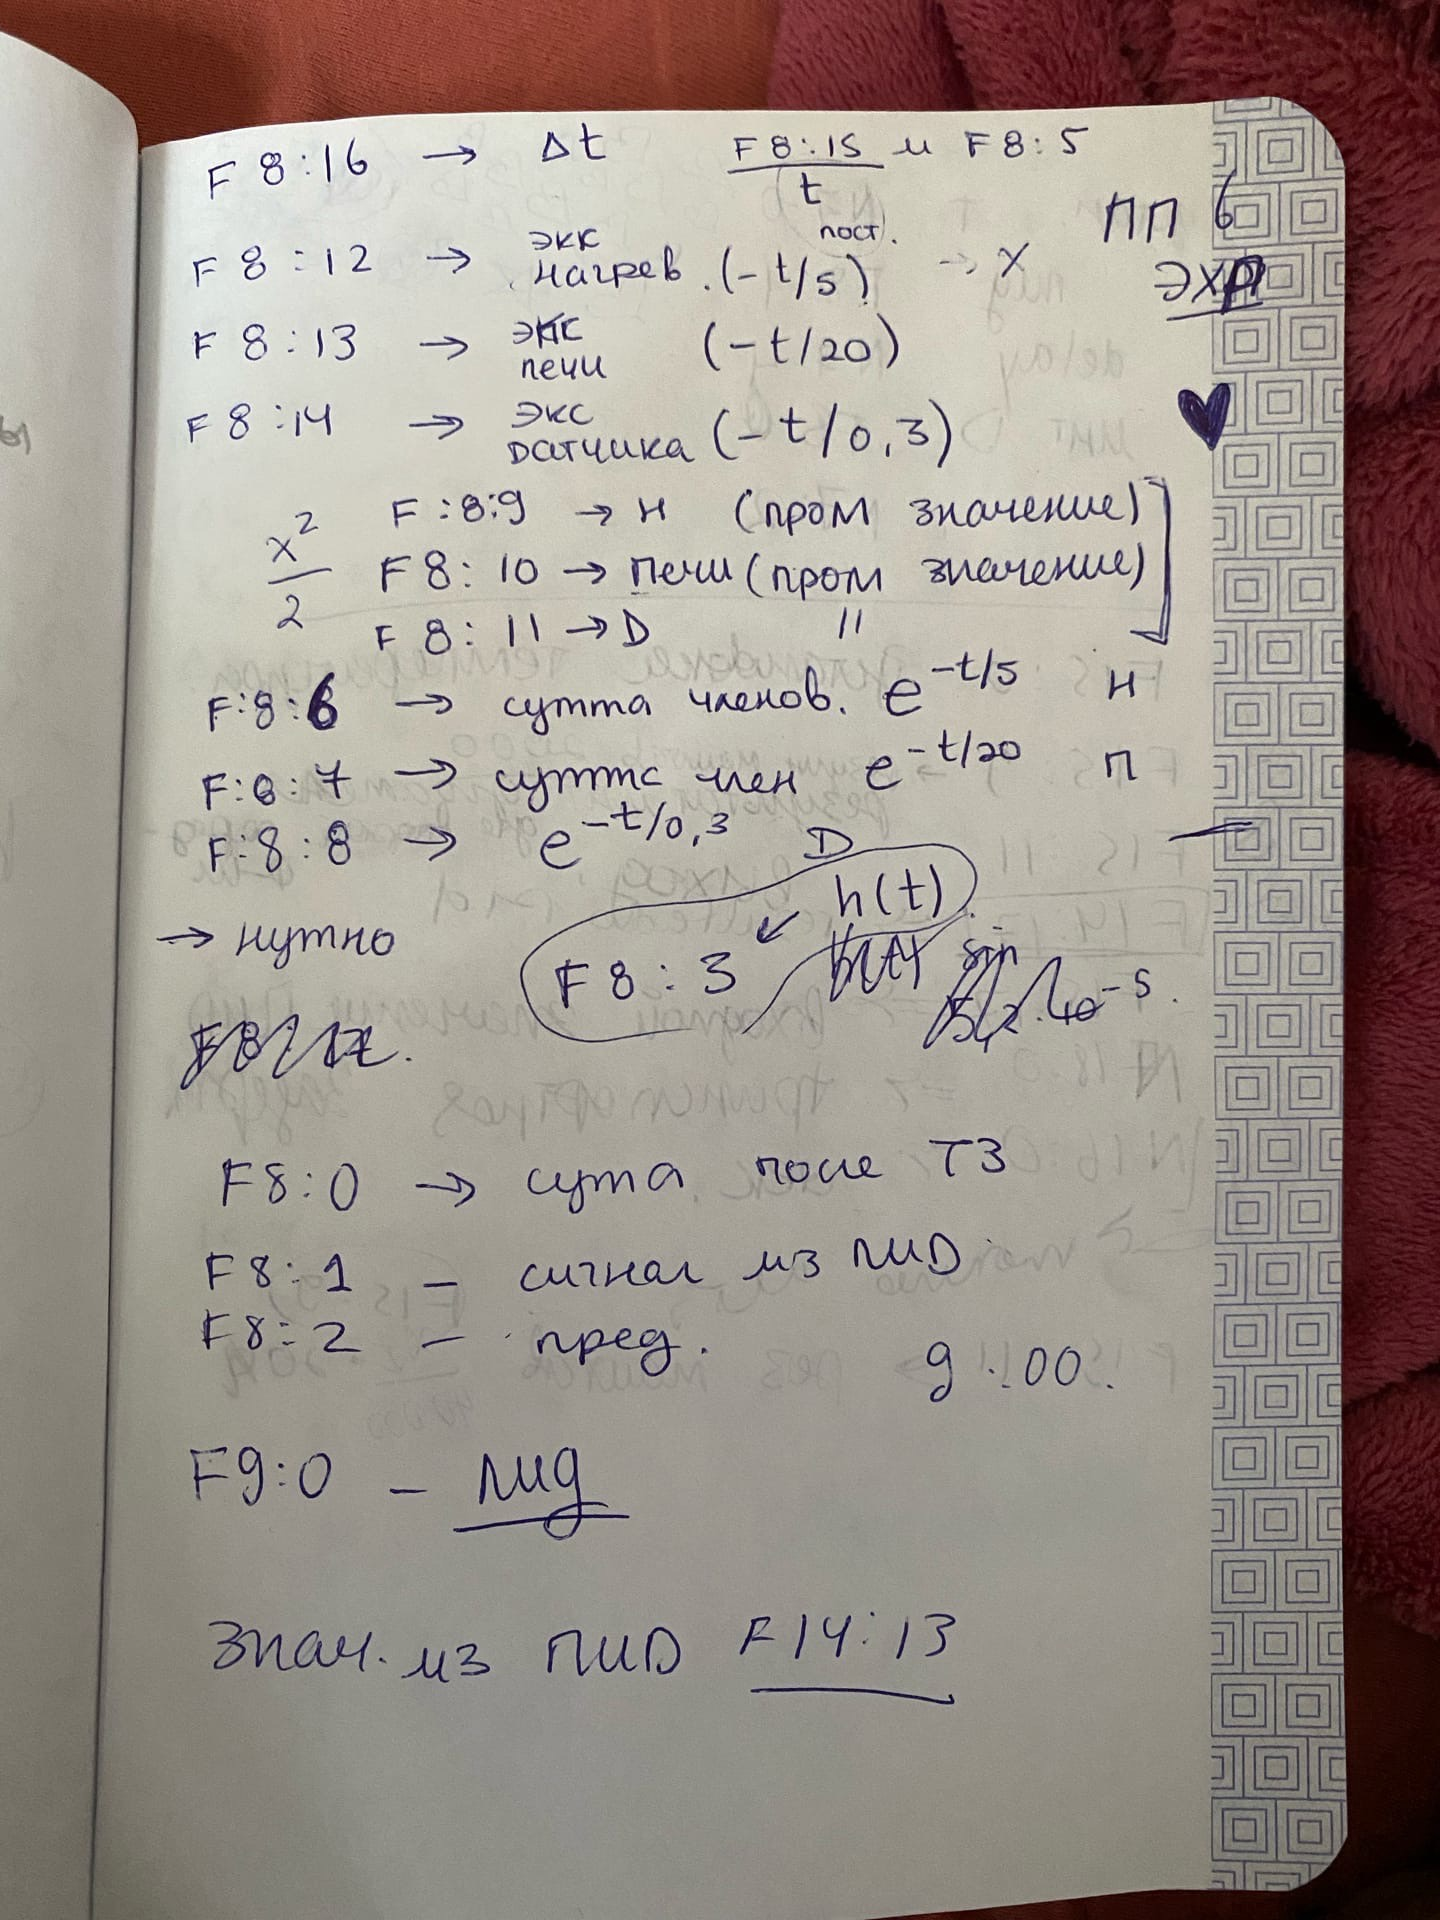 F 8:16 → Δt F 8:15 и F 8:5
t
ПП 6
ЭХП
F 8:12 → экк нагрев. (-t/5) пост. → x
F 8:13 → экс печи (-t/20)
F 8:14 → экс датчика (-t/0,3)
x²/2
F:8:9 → н (пром значение)
F 8:10 → печи (пром значение)
F 8:11 → D "
F:8:6 → сутта членов. e^-t/5 н
F:8:7 → сутта член e^-t/20 п
F:8:8 → e^-t/0,3 D
h(t)
→ нутно F 8:3
F8:0 → сута после ТЗ
F 8:1 – сигнал из ПИD
F8:2 – пред.
9:00.
F9:0 – пид
Знач. из ПИD F 14:13